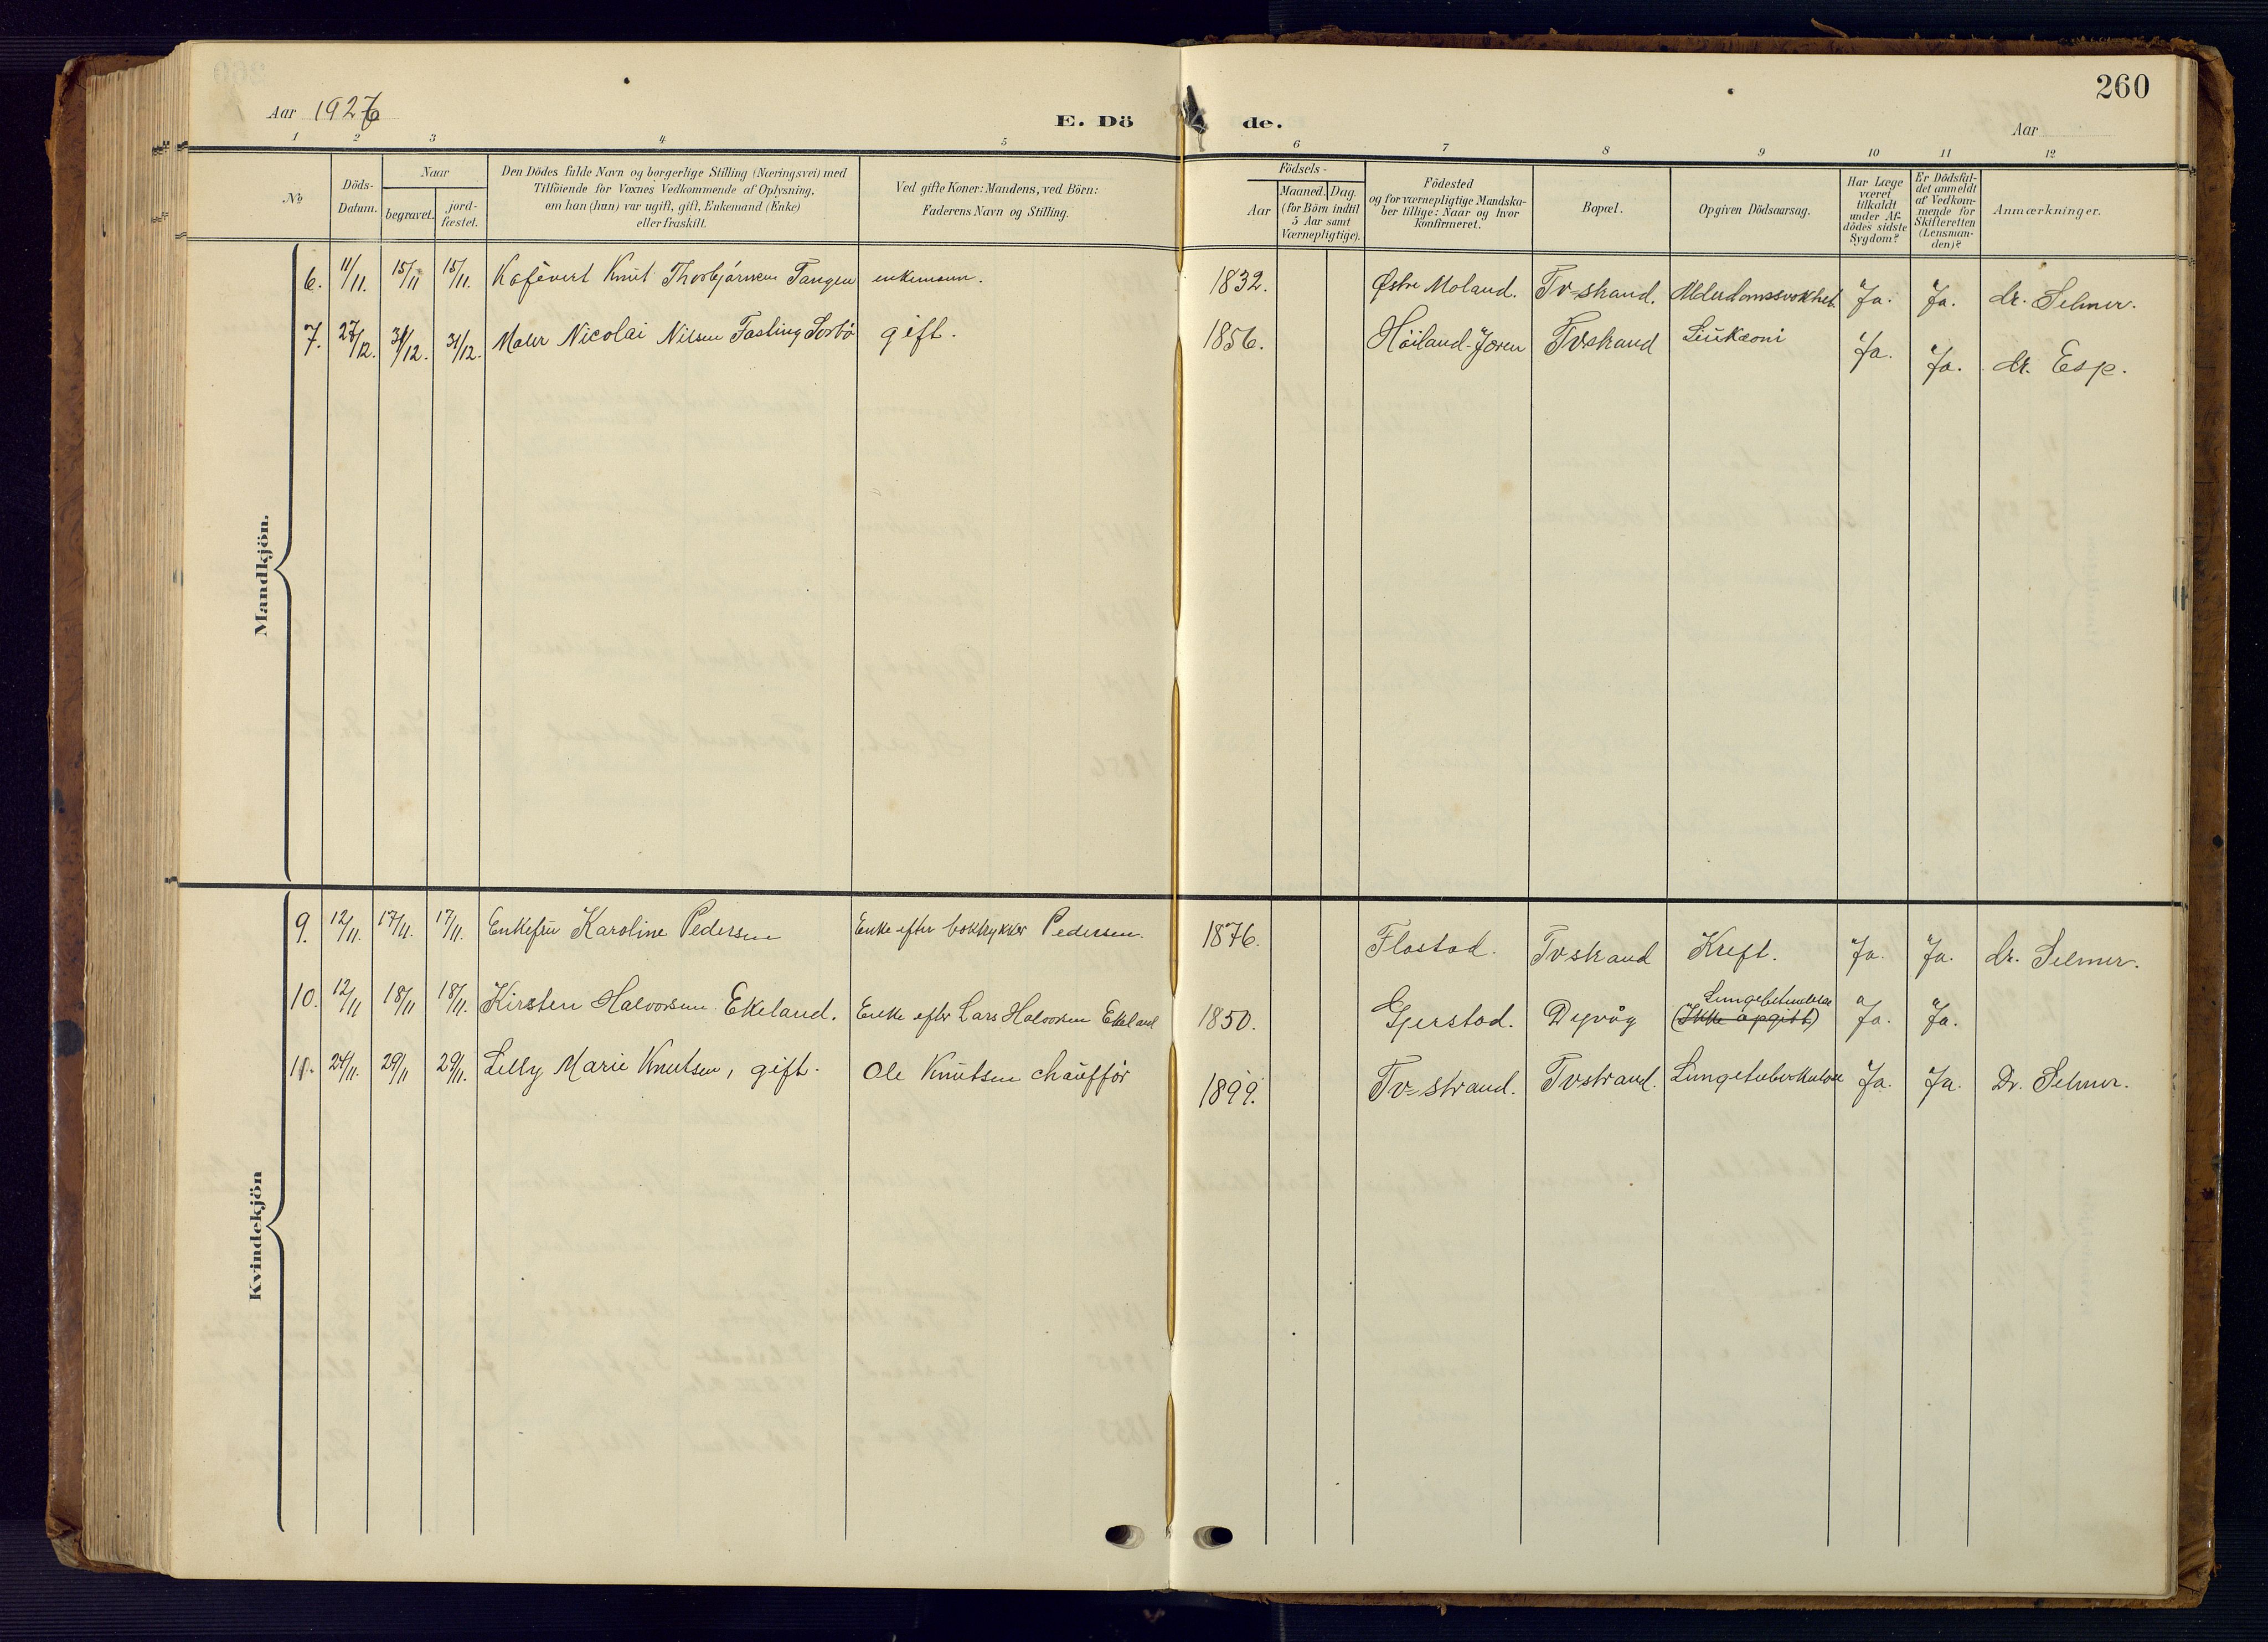 260
Aar 1926
E. Dö de.
Aar
1 2 3 4 5 6 7 8 9 10 11 12
№
Döds-Datum.
Naar
begravet.
jord-fæstet.
Den Dödes fulde Navn og borgerlige Stilling (Næringsvei) med
Tilföiende for Voxnes Vedkommende af Oplysning,
om han (hun) var ugift, gift, Enkemand (Enke)
eller fraskilt.
Ved gifte Koner: Mandens, ved Börn:
Faderens Navn og Stilling.
Födsels-
Aar
Maaned. Dag.
(for Börn indtil
5 Aar samt
Værnepligtige).
Födested
og for værnepligtige Mandska-
ber tillige: Naar og hvor
Konfirmeret.
Bopæl.
Opgiven Dödsaarsag.
Har Læge
været
tilkaldt
under Af-
dödes sidste
Sygdom?
Er Dödsfal-
det anmeldt
af Vedkom-
mende for
Skifteretten
(Lensman-
den)?
Anmærkninger.
Mandkjön.
6. 11/11. 15/11 15/11. Knut Thorbjørnsen Tangen enkemann. 1832. Østre Moland. Tv-strand. Alderdomssvakhet. Ja. Ja. dr. Selmer.
7. 27/12. 31/12. 31/12. Maler Nicolai Nilsen Fasting Sorbö gift. 1856. Höiland-Jæren Tvstrand Leukæmi Ja. Ja. dr. Esp.
Kvindekjön
9. 12/11. 17/11. 17/11. Enkefru Karoline Pedersen Enke efter boktrykker Pedersen. 1876. Flostad. Tvstrand Kreft. Ja. Ja. dr. Selmer.
10. 12/11 18/11 18/11. Kirsten Halvorsen Ekeland. Enke efter Lars Halvorsen Ekeland 1850. Gjerstad. Dypvåg Lungebetendelse (Ikke opgitt) Ja. Ja.
11. 24/11. 29/11 29/11. Lelly Marie Knutsen, gift. Ole Knutsen chauffør 1899. Tv-strand. Tvstrand. Lungetuberkulose Ja. Ja. Dr. Selmer.